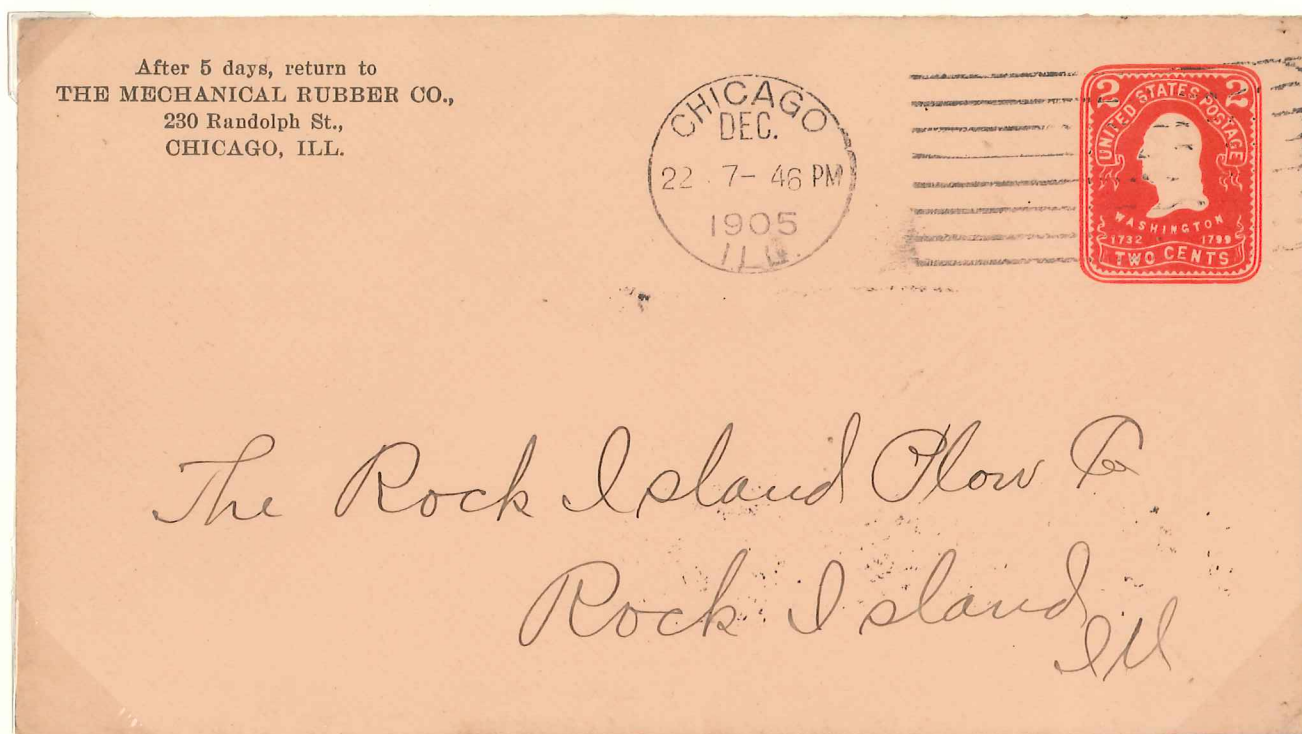 After 5 days, return to
THE MECHANICAL RUBBER CO.,
230 Randolph St.,
CHICAGO, ILL.
CHICAGO
DEC.
22 7-46 PM
1905
ILL.
2 2
UNITED STATES POSTAGE
WASHINGTON
1732 1799
TWO CENTS
The Rock Island Plow Co
Rock Island
Ill